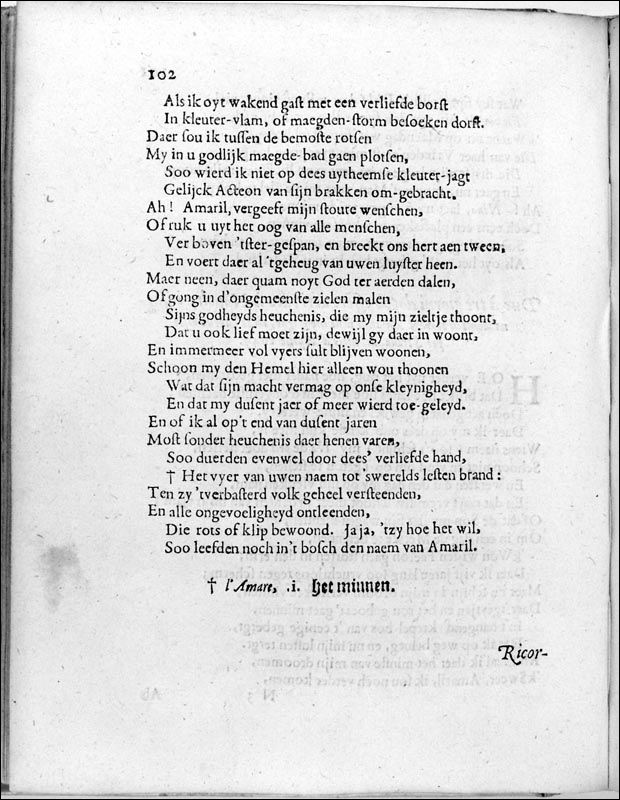 102
Als ik oyt wakend gast met een verliefde borst
In kleuter-vlam, of maegden-storm besoeken dorst.
Daer sou ik tussen de bemoste rotsen
My in u godlijk maegde-bad gaen plotsen,
Soo wierd ik niet op dees uytheemse kleuter-jagt
Gelijck Acteon van sijn brakken om-gebracht.
Ah! Amaril, vergeeft mijn stoute wenschen,
Of ruk u uyt het oog van alle menschen,
Ver boven 'tster-gespan, en breekt ons hert aen tween,
En voert daer al 'tgeheug van uwen luyster heen.
Maer neen, daer quam noyt God ter aerden dalen,
Of gong in d'ongemeenste zielen malen
Sijns godheyds heuchenis, die my mijn zieltje thoont,
Dat u ook lief moet zijn, dewijl gy daer in woont,
En immermeer vol vyers sult blijven woonen,
Schoon my den Hemel hier alleen wou thoonen
Wat dat sijn macht vermag op onse kleynigheyd,
En dat my dusent jaer of meer wierd toe-geleyd.
En of ik al op't end van dusent jaren
Most sonder heuchenis daer henen varen,
Soo duerden evenwel door dees' verliefde hand,
† Het vyer van uwen naem tot 'swerelds lesten brand:
Ten zy 'tverbasterd volk geheel versteenden,
En alle ongevoeligheyd ontleenden,
Die rots of klip bewoond. Ja ja, 'tzy hoe het wil,
Soo leefden noch in't bosch den naem van Amaril.
† l'Amare, .i. het minnen.
Ricor-